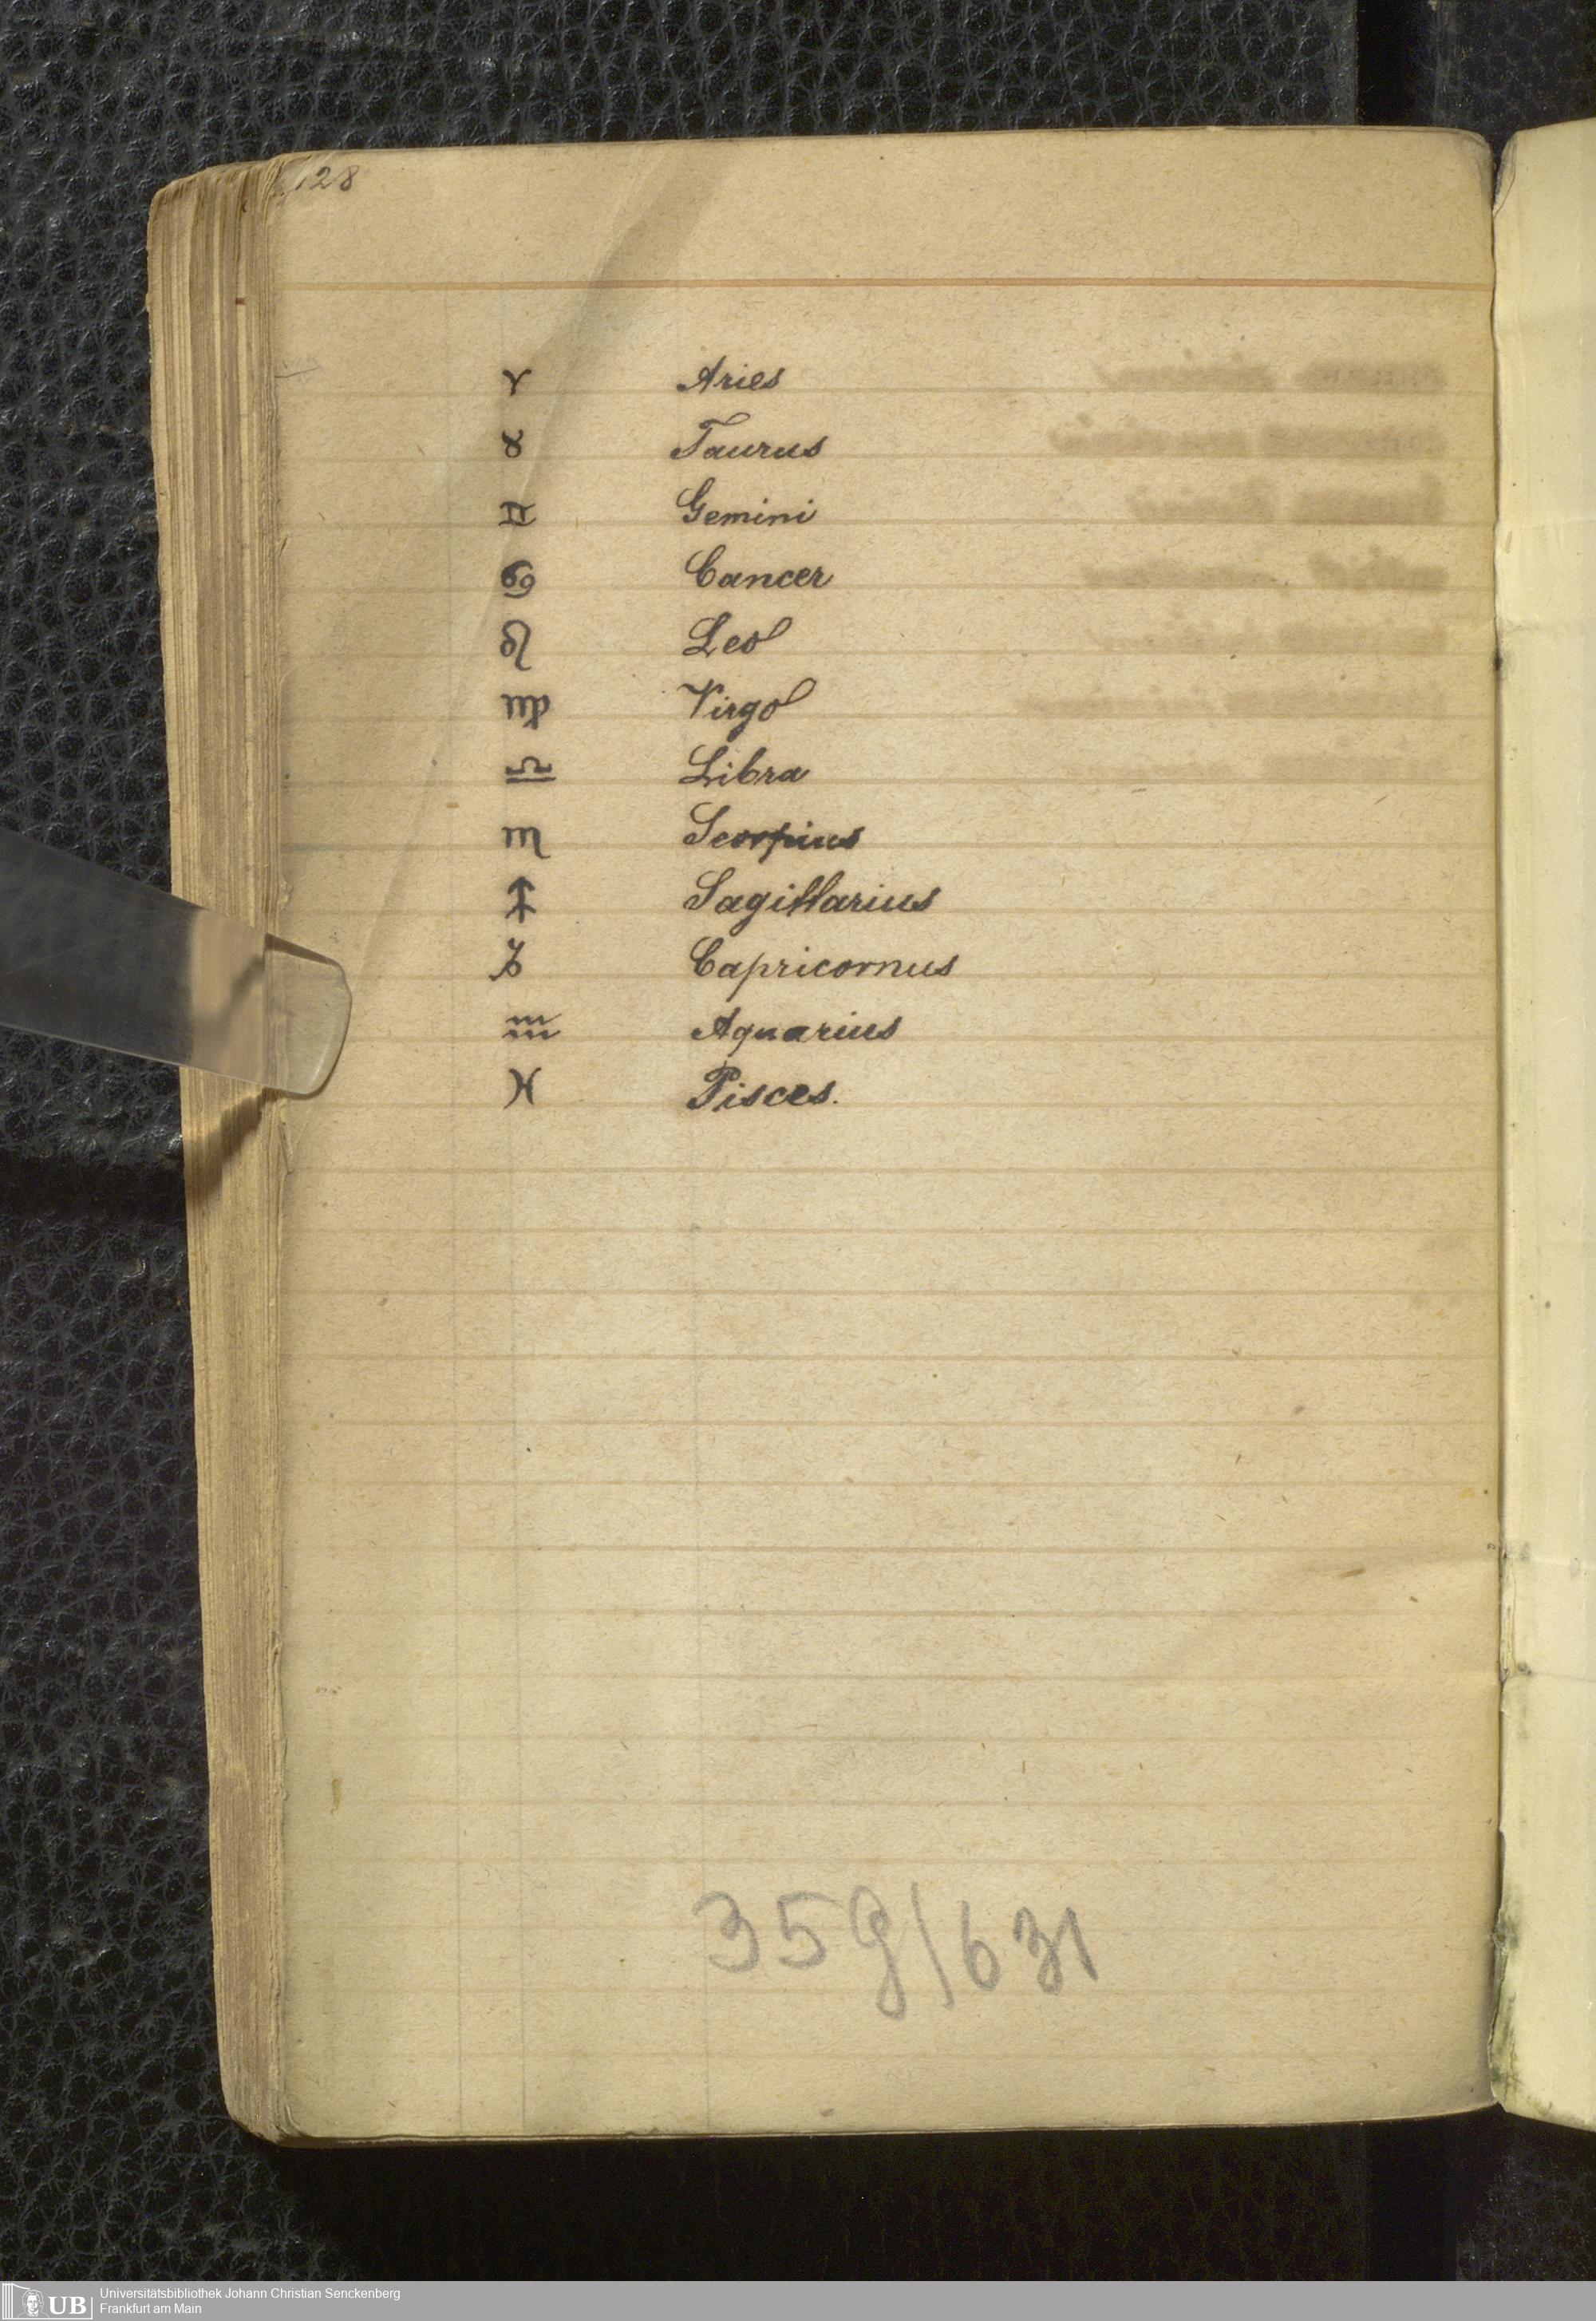 128
♈ Aries
♉ Taurus
♊ Gemini
♋ Cancer
♌ Leo
♍ Virgo
♎ Libra
♏ Scorpius
♐ Sagittarius
♑ Capricornus
♒ Aquarius
♓ Pisces.
35g/631
UB Universitätsbibliothek Johann Christian Senckenberg
Frankfurt am Main